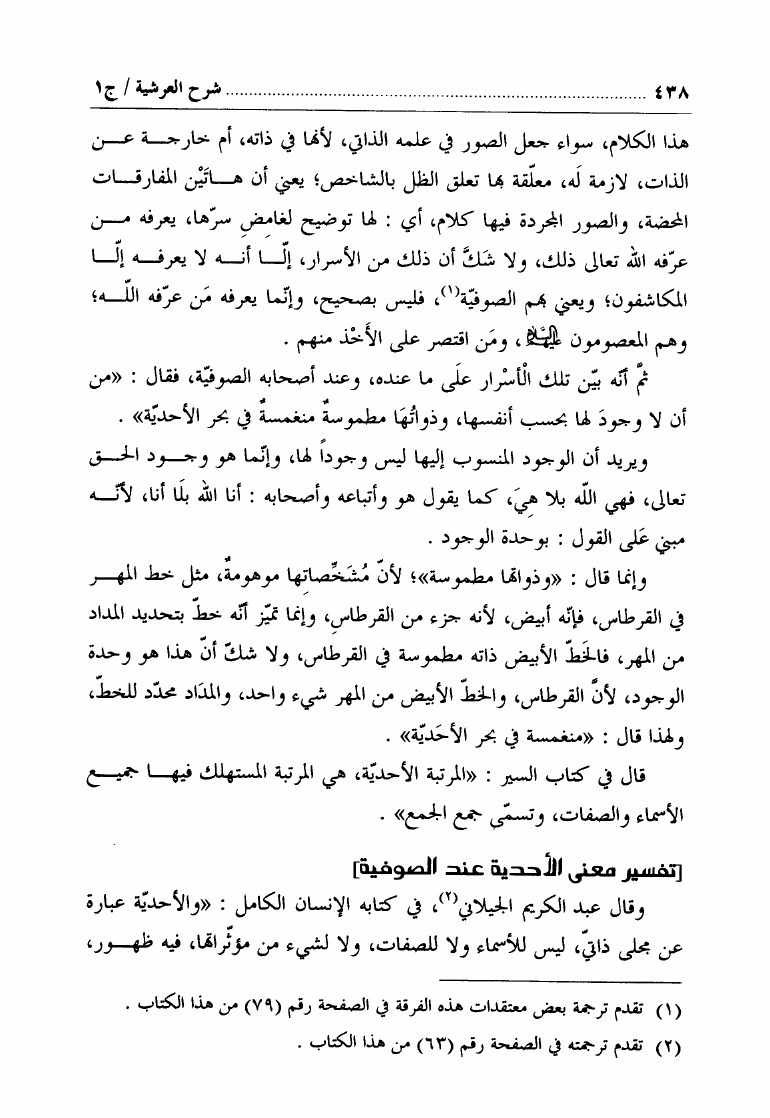 ٤٣٨ ........................................ شرح العرشية / ج١
هذا الكلام، سواء جعل الصور في علمه الذاتي، لأنها في ذاته، أم خارجة عن
الذات، لازمة لَه، معلّقة بها تعلق الظل بالشاخص؛ يعني أن هاتَيْن المفارقات
المحضة، والصور المجردة فيها كلام، أي : لها توضيح لغامضِ سرّها، يعرفه من
عرّفه الله تعالى ذلك، ولا شكَّ أن ذلك من الأسرار، إلّا أنه لا يعرفه إلّا
المكاشفون؛ ويعني بهم الصوفيّة(١)، فليس بصحيح، وإنّما يعرفه مَن عرّفه اللّه؛
وهم المعصومون عليهم السلام، ومَن اقتصر على الأَخْذ منهم .
ثمَّ أنّه بيّن تلك الْأسْرار علَى ما عنده، وعند أصحابه الصوفيّة، فقال : «من
أن لا وجودَ لها بحسب أنفسها، وذواتُهَا مطموسةٌ منغمسةٌ في بحر الأحديّة» .
ويريد أن الوجود المنسوب إليها ليس وجوداً لها، وإنّما هو وجود الحق
تعالى، فهي اللّه بلا هِيَ، كما يقول هو وأتباعه وأصحابه : أنا الله بلَا أنا، لأنّه
مبني عَلى القول : بوحدة الوجود .
وإنما قال : «وذواتها مطموسة»؛ لأنّ مُشَخِّصاتِها موهومةٌ، مثل خط المهر
في القرطاس، فإنّه أبيض، لأنه جزء من القرطاسِ، وإنما تميّز أنّه خطّ بتحديد المداد
من المهر، فالخَطّ الأبيض ذاته مطموسة في القرطاس، ولا شكّ أنّ هذا هو وحدة
الوجود، لأنَّ القرطاس، والخطّ الأبيض من المهر شيء واحد، والمدَاد محدّد للخطّ،
ولهذا قال : «منغمسة في بحر الأحَديّة» .
قال في كتاب السير : «المرتبة الأحديّة، هي المرتبة المستهلك فيها جميع
الأسماء والصفات، وتسمّى جمع الجمع» .
[تفسير معنى الأحدية عند الصوفية]
وقال عبد الكريم الجيلاني(٢)، في كتابه الإنسان الكامل : «والأحديّة عبارة
عن مجلى ذاتيّ، ليس للأسماء ولا للصفات، ولا لشيء من مؤثّراتها، فيه ظهور،
(١) تقدم ترجمة بعض معتقدات هذه الفرقة في الصفحة رقم (٧٩) من هذا الكتاب .
(٢) تقدم ترجمته في الصفحة رقم (٦٣) من هذا الكتاب .